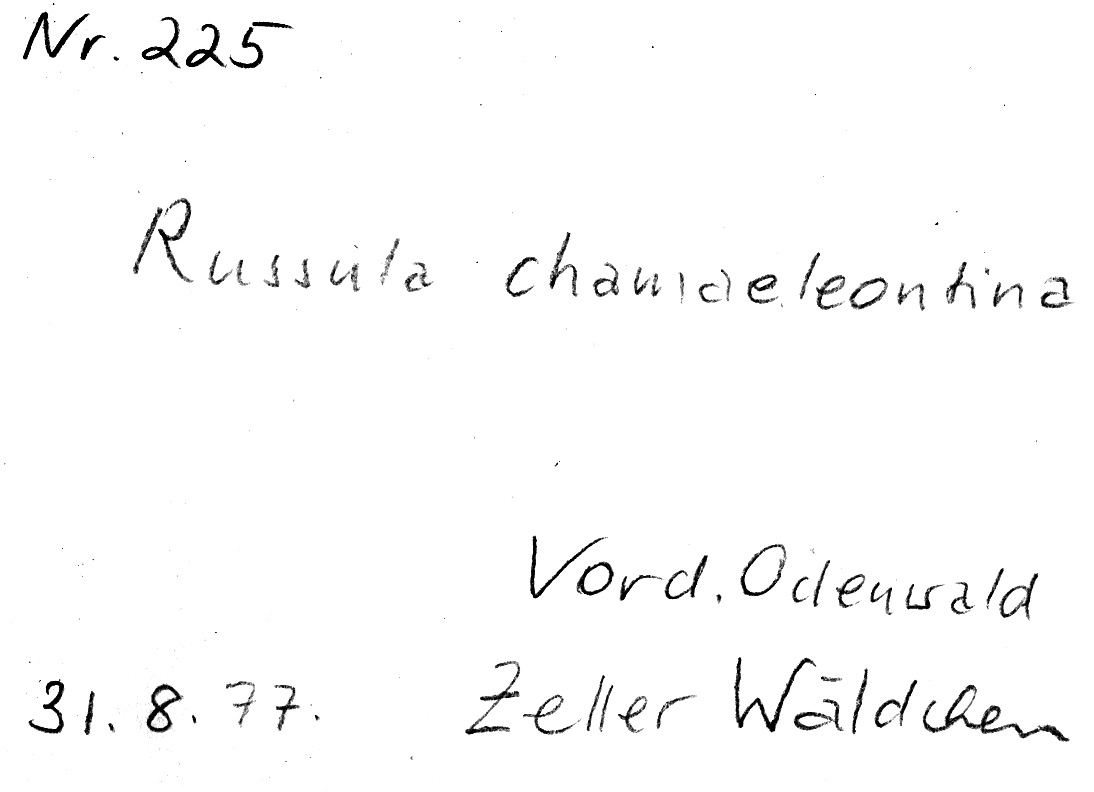 Nr. 225
Russula chamaeleontina
Vord. Odenwald
31. 8. 77. Zeller Wäldchen